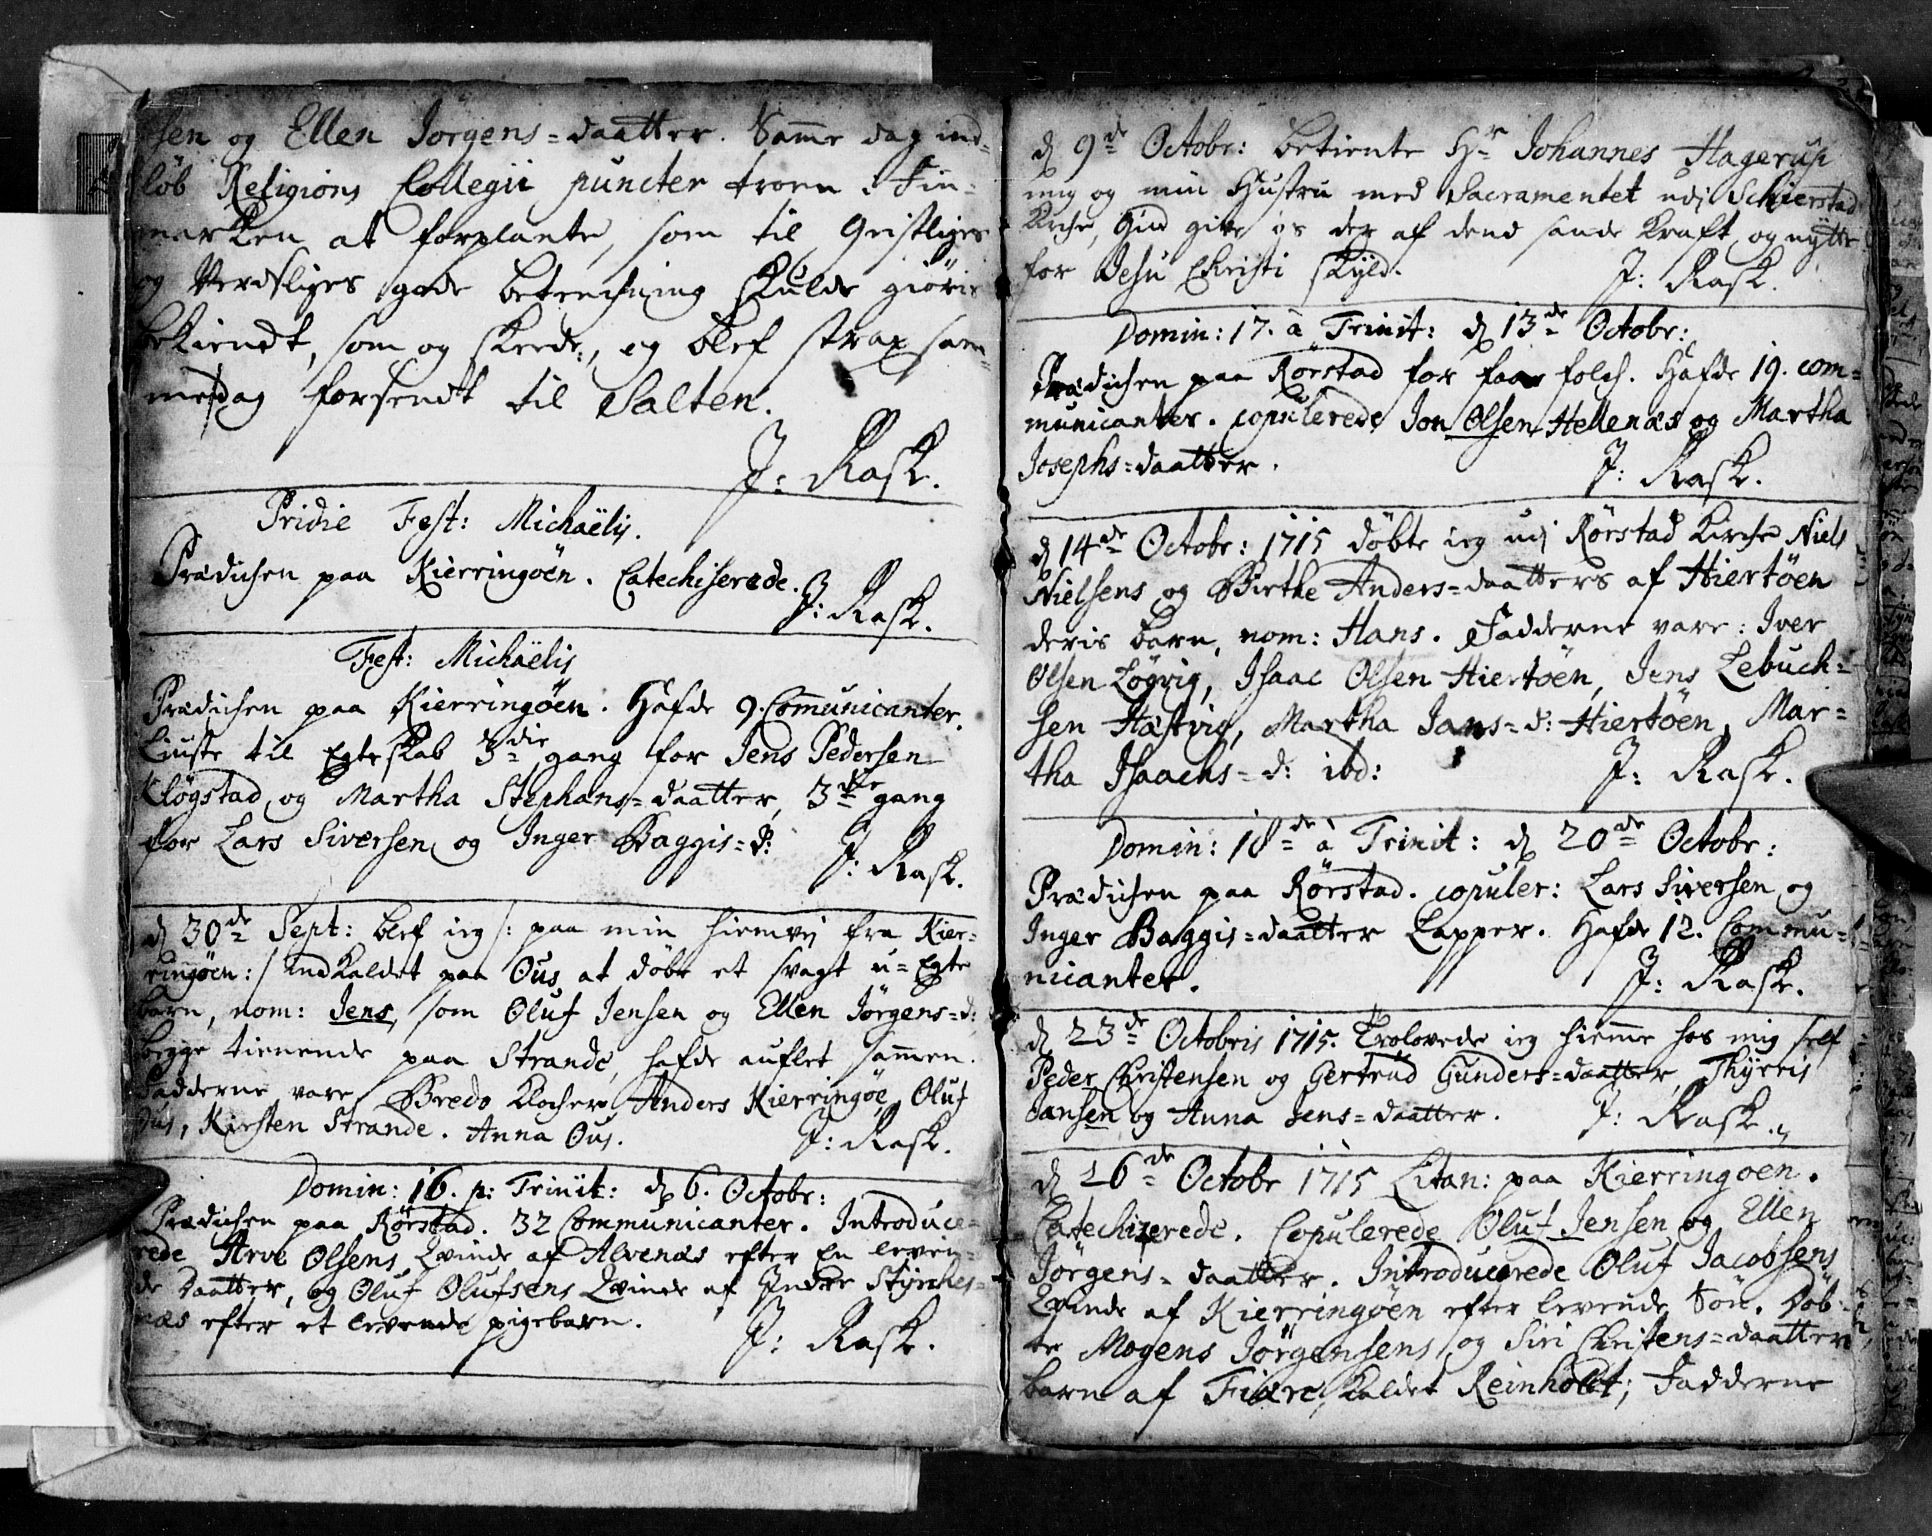 sen og Ellen Jörgens=daatter. Samme dag ind=
löb Religions Collegii puncter troen i Fin=
marken at forplante, som til Geistliges
og Verdsliges gode betenchning skulde giöris
bekiendt, som og skeede, og blef strax sam=
medag forsendt til Salten.
J: Rask.
Pridie Fest: Michaëlis.
Prædichen paa Kierringöen. Catechiserede.
J: Rask.
Fest: Michaëlis
Prædichen paa Kierringöen. Hafde 9. Communicanter.
Liuste til Egteskab 3die gang for Jens Pedersen
Klögstad og Martha Stephans=daatter, 3die gang
for Lars Siversen og Inger Baggis=d:
J: Rask.
d 30de Sept: blef ieg /: paa min hiemvej fra Kier=
ringöen :/ indkaldet paa Ous at döbe et svagt u=Egte
barn, nom: Jens, som Oluf Jensen og Ellen Jörgens=d:
begge tienende paa Strande, hafde auflet sammen.
Fadderne vare Bredo Klocher, Anders Kierringöe, Oluf
Ous, Kirsten Strande. Anna Ous.
J: Rask.
Domin: 16. p: Trinit: d 6. Octobr:
Prædichen paa Rörstad. 32 Communicanter. Introduce=
rede Arve Olsens Qvinde af Alvenæs efter En leven=
de Daatter, og Oluf Olufsens Qvinde af Indre Styrches=
næs efter et levende pigebarn.
J: Rask.
d 9de Octobr: betiente Hr Johannes Hagerup
mig og min Hustru med Sacramentet udj Schierstad
Kirche, Gud give os der af dend sande Kraft og nytte
for Jesu Christi skyld.
J: Rask.
Domin: 17. à Trinit: d 13de Octobr:
Prædichen paa Rörstad for faae folch. Hafde 19. com=
municanter. copulerede Jon Olsen Hellenæs og Martha
Josephs=daatter.
J: Rask.
d 14de Octobr: 1715 döbte ieg udj Rörstad Kirche Niels
Nielsens og Birthe Anders=daatters af Hiertöen
deris barn, nom: Hans. Fadderne vare: Iver
Olsen Lögvig, Isaac Olsen Hiertöen, Jens Zebuch=
sen Hæstvig, Martha Jans=d: Hiertöen, Mar=
tha Isaachs=d: ibd:
J: Rask.
Domin: 18de à Trinit: d 20de Octobr:
Prædichen paa Rörstad. copuler: Lars Siversen og
Inger Baggis=daatter Lapper. Hafde 12. Commu=
nicanter.
J: Rask.
d 23de Octobris 1715. Trolovede ieg hiemme hos mig self
Peder Christensen og Gertrud Gunders=daatter, Thyrris
Jansen og Anna Jens=daatter.
J: Rask.
d 26de Octobr 1715 Litan: paa Kierringoen.
Catechizerede. Copulerede Oluf Jensen og Ellen
Jörgens=daatter. Introducerede Oluf Jacobsens
Qvinde af Kierringöen efter levende Sön. Döb=
te Mogens Jörgensens og Siri Christens=daatters
barn af Fiære, kaldet Reinholt; Fadderne